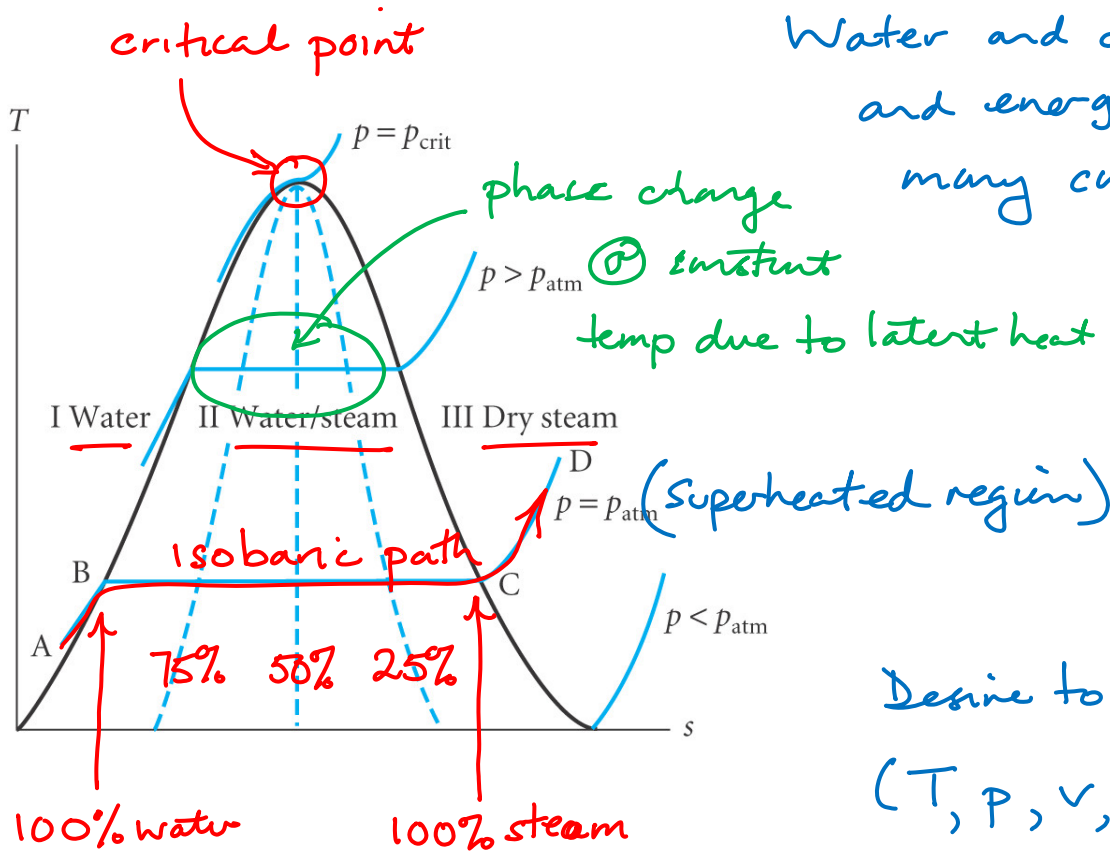 critical point
Water and
and energ
many
T
p = p_crit
phase change
@ constant
temp due to latent heat
p > p_atm
I Water
II Water/steam
III Dry steam
D
p = p_atm
(superheated region)
isobaric path
B
C
A
p < p_atm
75% 50% 25%
s
Desire to
(T, p, v,
100% water
100% steam